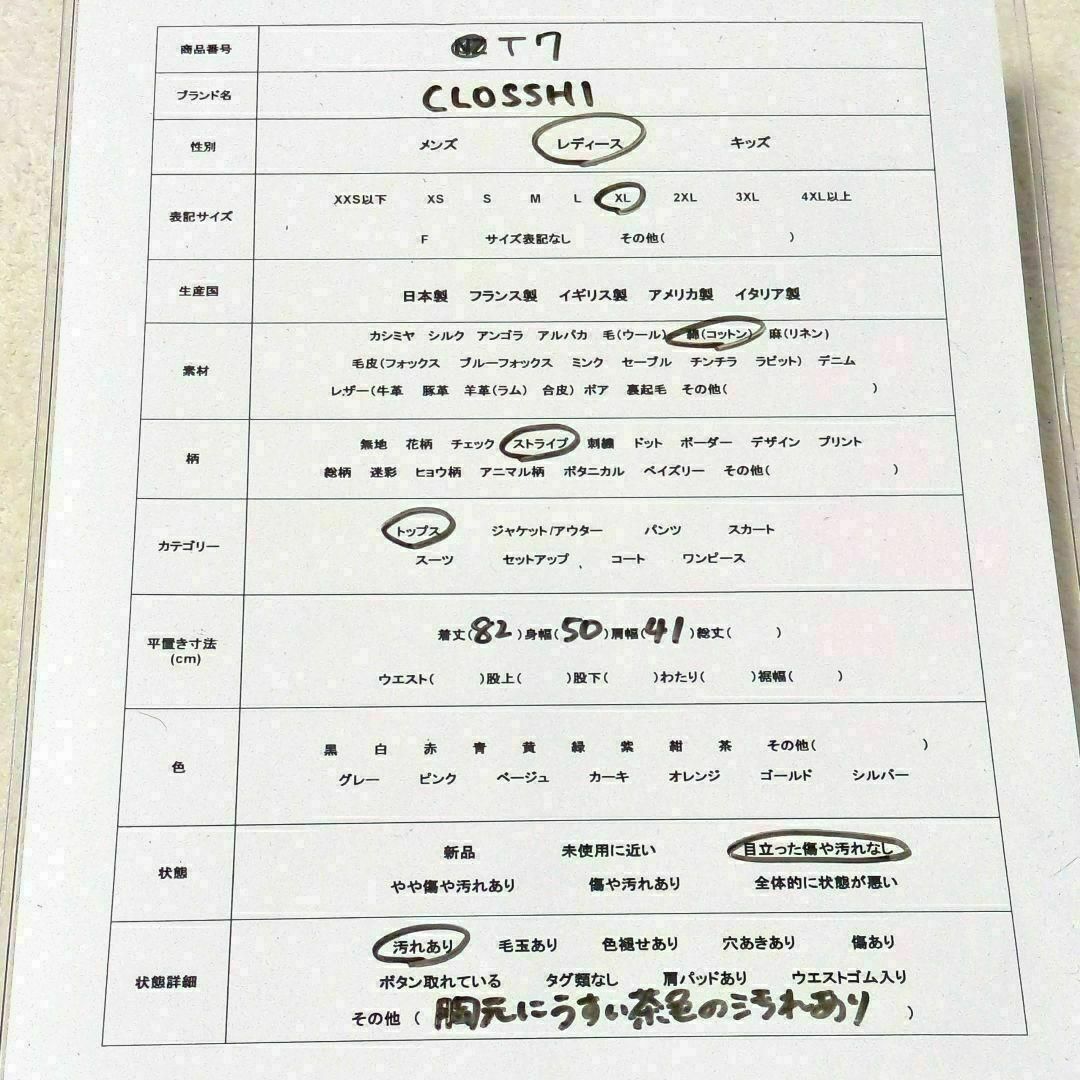 商品番号 T7
ブランド名 CLOSSHI
性別 メンズ レディース キッズ
表記サイズ XXS以下 XS S M L XL 2XL 3XL 4XL以上
F サイズ表記なし その他( )
生産国 日本製 フランス製 イギリス製 アメリカ製 イタリア製
素材 カシミヤ シルク アンゴラ アルパカ 毛(ウール) 綿(コットン) 麻(リネン)
毛皮(フォックス ブルーフォックス ミンク セーブル チンチラ ラビット) デニム
レザー(牛革 豚革 羊革(ラム) 合皮) ボア 裏起毛 その他( )
柄 無地 花柄 チェック ストライプ 刺繍 ドット ボーダー デザイン プリント
総柄 迷彩 ヒョウ柄 アニマル柄 ボタニカル ペイズリー その他( )
カテゴリー トップス ジャケット/アウター パンツ スカート
スーツ セットアップ コート ワンピース
平置き寸法 (cm) 着丈(82)身幅(50)肩幅(41)総丈( )
ウエスト( )股上( )股下( )わたり( )裾幅( )
色 黒 白 赤 青 黄 緑 紫 紺 茶 その他( )
グレー ピンク ベージュ カーキ オレンジ ゴールド シルバー
状態 新品 未使用に近い 目立った傷や汚れなし
やや傷や汚れあり 傷や汚れあり 全体的に状態が悪い
状態詳細 汚れあり 毛玉あり 色褪せあり 穴あきあり 傷あり
ボタン取れている タグ類なし 肩パッドあり ウエストゴム入り
その他 ( 胸元にうすい茶色の汚れあり )